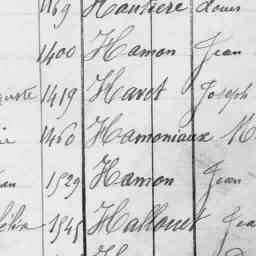 1469 Hautière Louis
1400 Hamon Jean
1419 Havet Joseph
1460 Hamoniaux
1529 Hamon Jean
1545 Hallouet